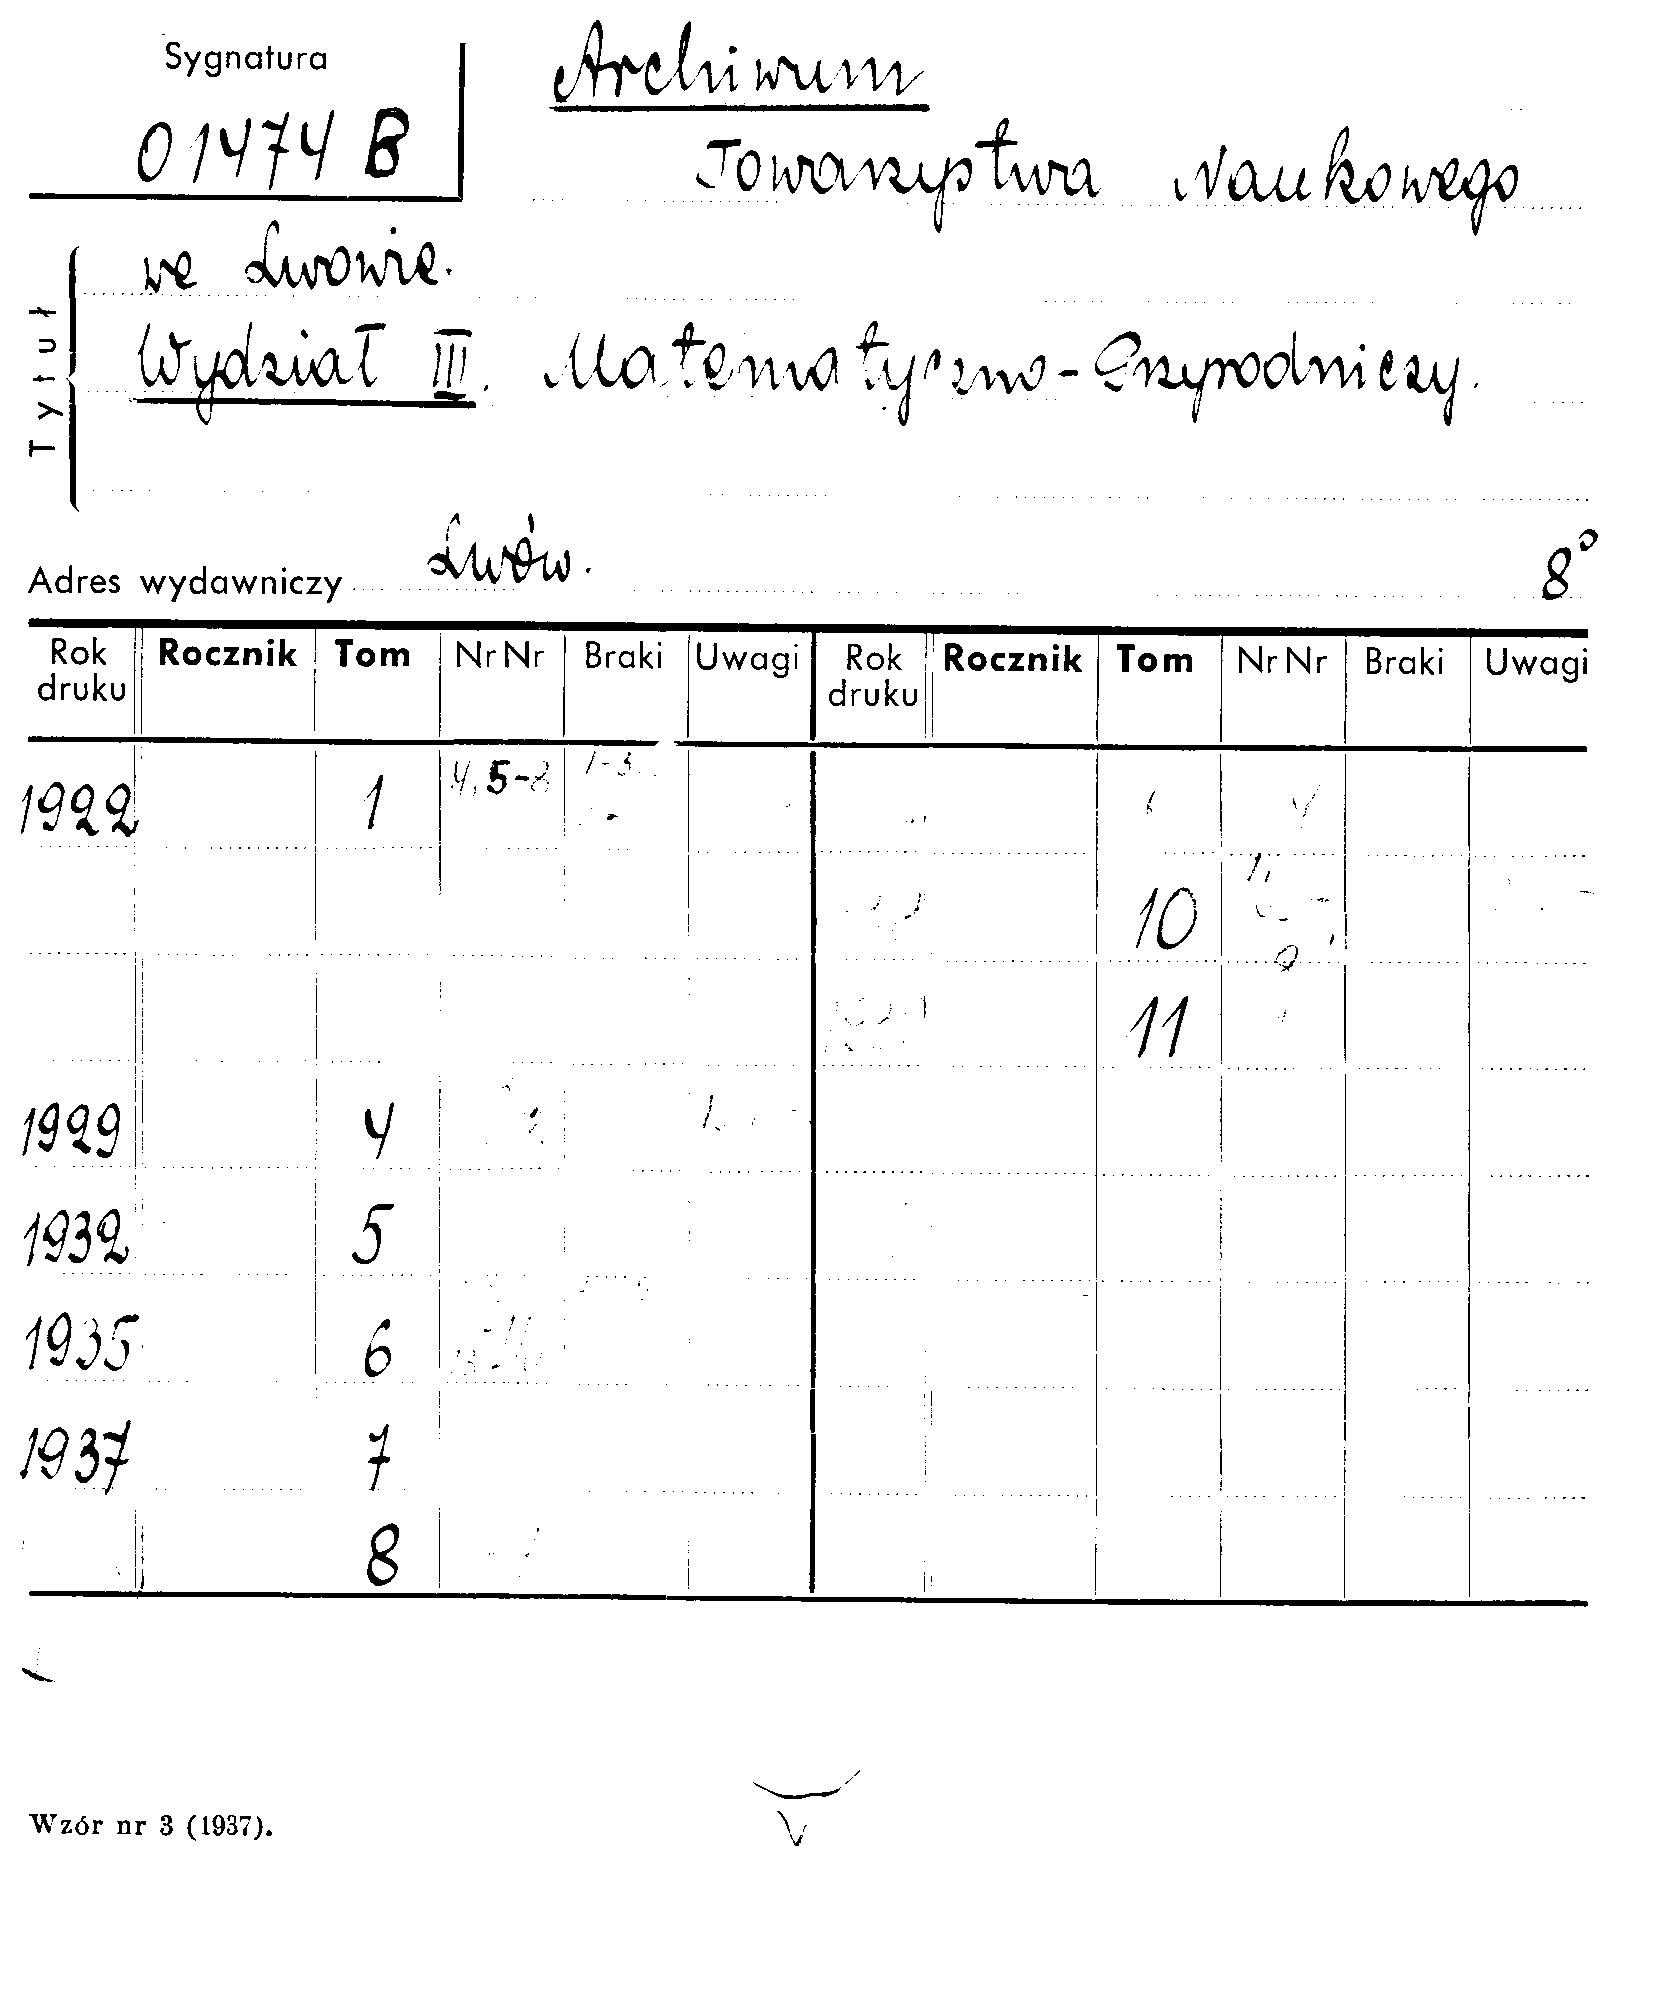 Sygnatura
01474 B
Archiwum
Towarzystwa Naukowego
we Lwowie.
Tytuł
Wydział III. Matematyczno-Przyrodniczy.
Adres wydawniczy Lwów. 8°
Rok druku Rocznik Tom Nr Nr Braki Uwagi Rok druku Rocznik Tom Nr Nr Braki Uwagi
1922 1 4, 5-8 1-3
10
11
1929 4
1932 5
1935 6
1937 7
8
Wzór nr 3 (1937).